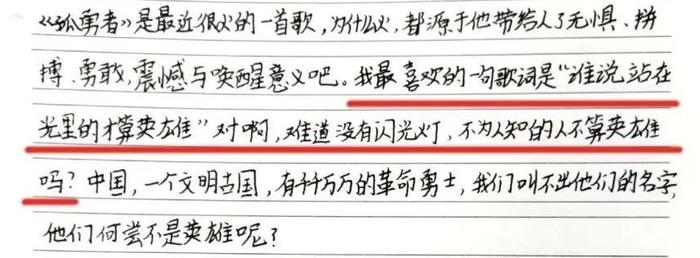 《孤勇者》是最近很火的一首歌,为什么火,都源于他带给人了无惧、拼
搏、勇敢,震憾与唤醒意义吧。我最喜欢的一句歌词是“谁说站在
光里的才算英雄”对啊,难道没有闪光灯,不为人知的人不算英雄
吗?中国,一个文明古国,有千千万万的革命勇士,我们叫不出他们的名字,
他们何尝不是英雄呢?